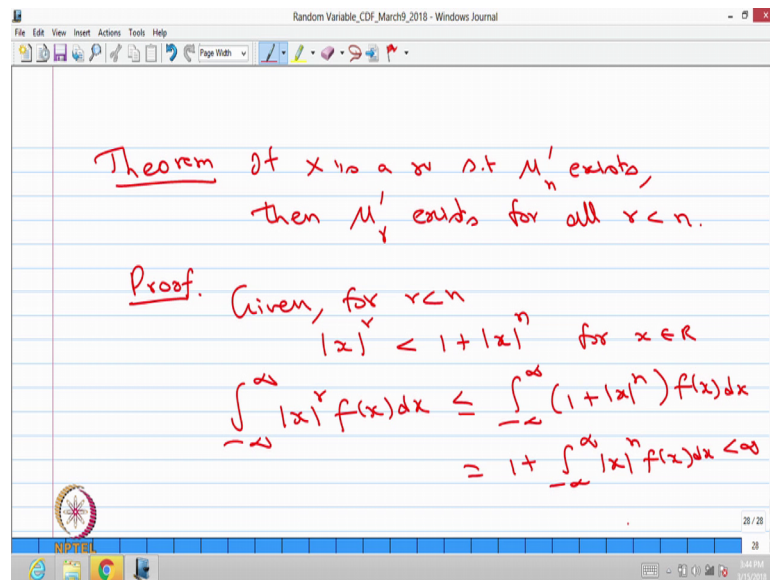 Random Variable_CDF_March9_2018 - Windows Journal
File Edit View Insert Actions Tools Help
Page Width
Theorem If X is a rv s.t μ'ₙ exists,
then μ'ᵣ exists for all r < n.
Proof. Given, for r < n
|x|^r < 1 + |x|^n for x ∈ R
∫_{-∞}^{∞} |x|^r f(x) dx ≤ ∫_{-∞}^{∞} (1 + |x|^n) f(x) dx
= 1 + ∫_{-∞}^{∞} |x|^n f(x) dx < ∞
28 / 28
NPTEL
28
3:44 PM